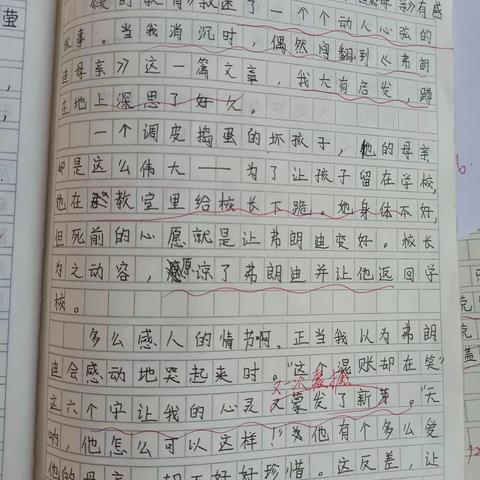 爱的教育》叙述了一个个动人心弦的
故事。当我消沉时，偶然间翻到《弗朗
迪母亲》这一篇文章，我大有启发，蹲
在地上深思了好久。
一个调皮捣蛋的坏孩子，他的母亲
却是这么伟大——为了让孩子留在学校，
她在教室里给校长下跪。她身体不好，
但死前的心愿就是让弗朗迪变好。校长
为之动容，原谅了弗朗迪并让他返回学
校。
多么感人的情节啊。正当我以为弗朗
迪会感动地哭起来时。"这个混账却在笑"
又一次
这六个字让我的心灵萌发了新芽。"天
呐，他怎么可以这样！"他有个多么爱
他的母亲，却不好好珍惜。这反差，让